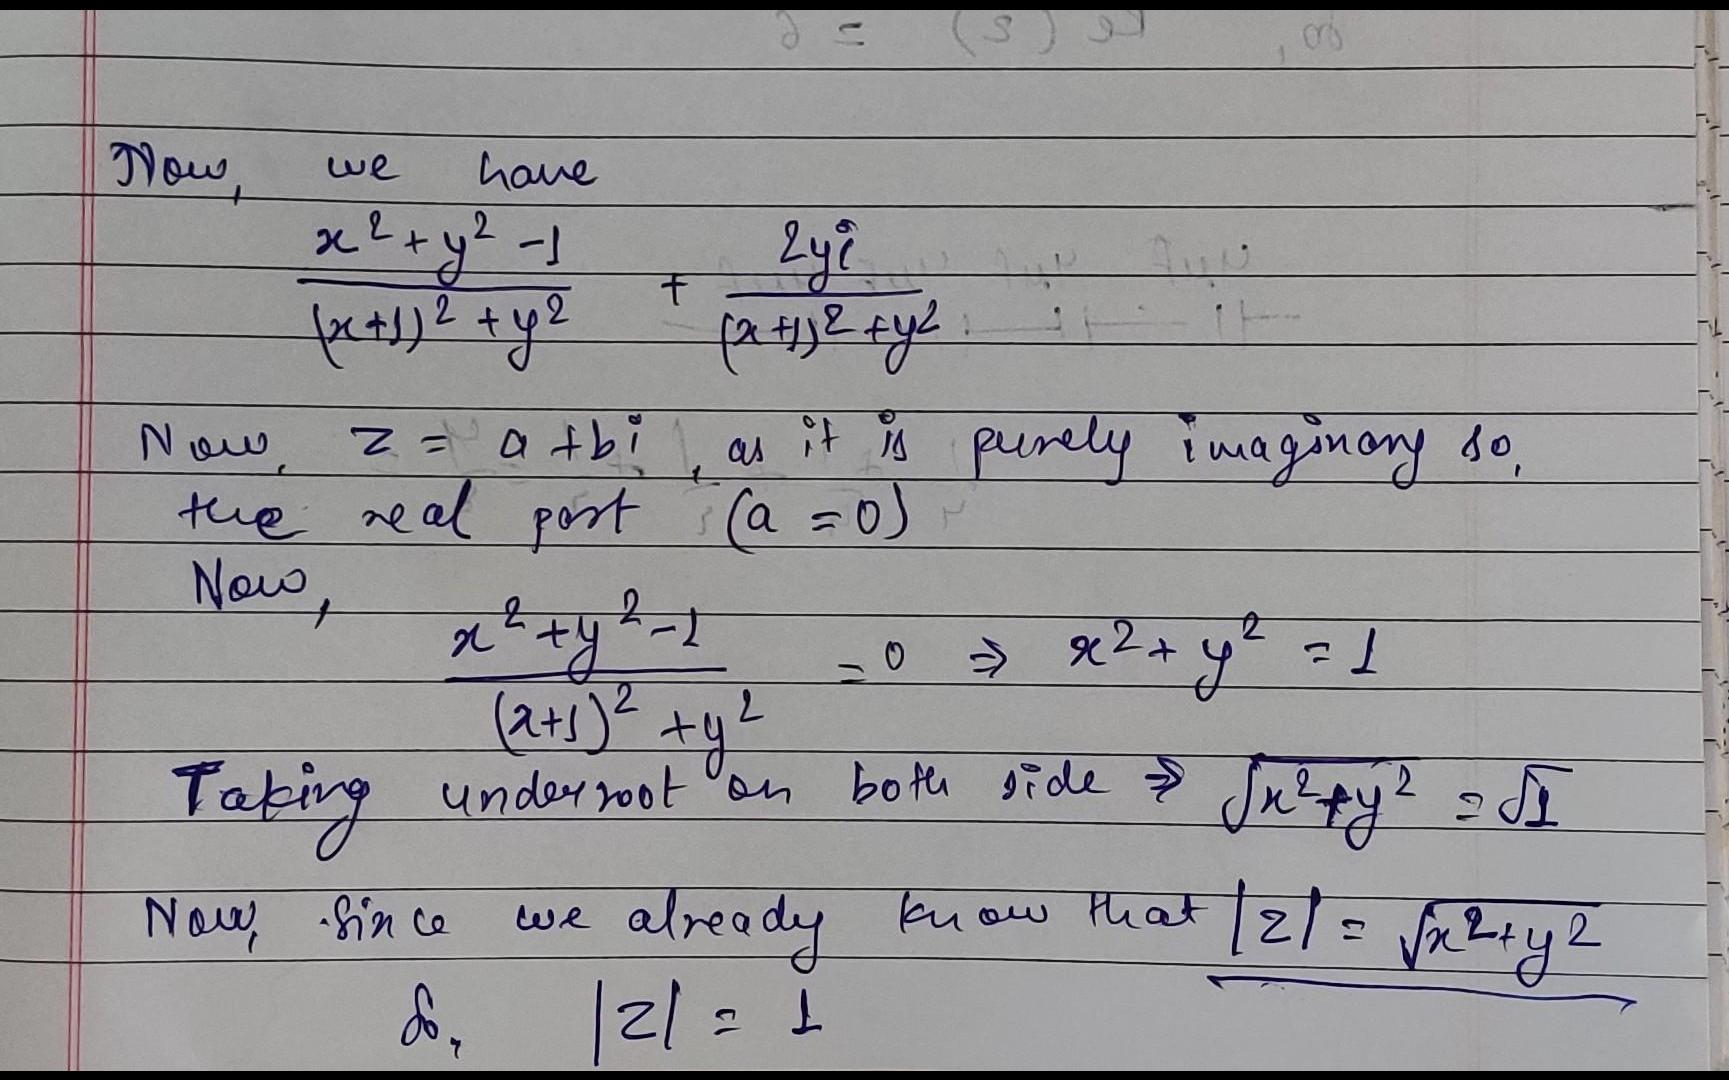 Now, we have
x² + y² - 1 / (x+1)² + y² + 2yi / (x+1)² + y²
Now, z = a + bi, as it is purely imaginary so,
the real part (a = 0)
Now,
x² + y² - 1 / (x+1)² + y² = 0 ⇒ x² + y² = 1
Taking underroot on both side ⇒ √x² + y² = √1
Now, since we already know that |z| = √x² + y²
So, |z| = 1